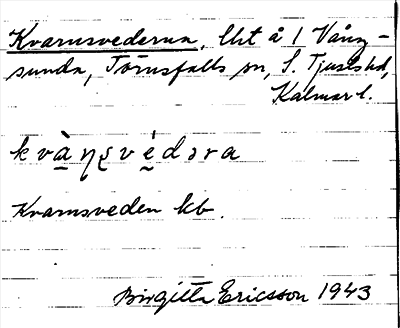 Kvarnsvederna, Uht å 1 Vång-
sunda, Törnsfalls sn, S. Tjusts hd,
Kalmar l.
kvà̠ŋʂvé̠dəra
Kvarnsveden kb.
Birgitta Ericsson 1943